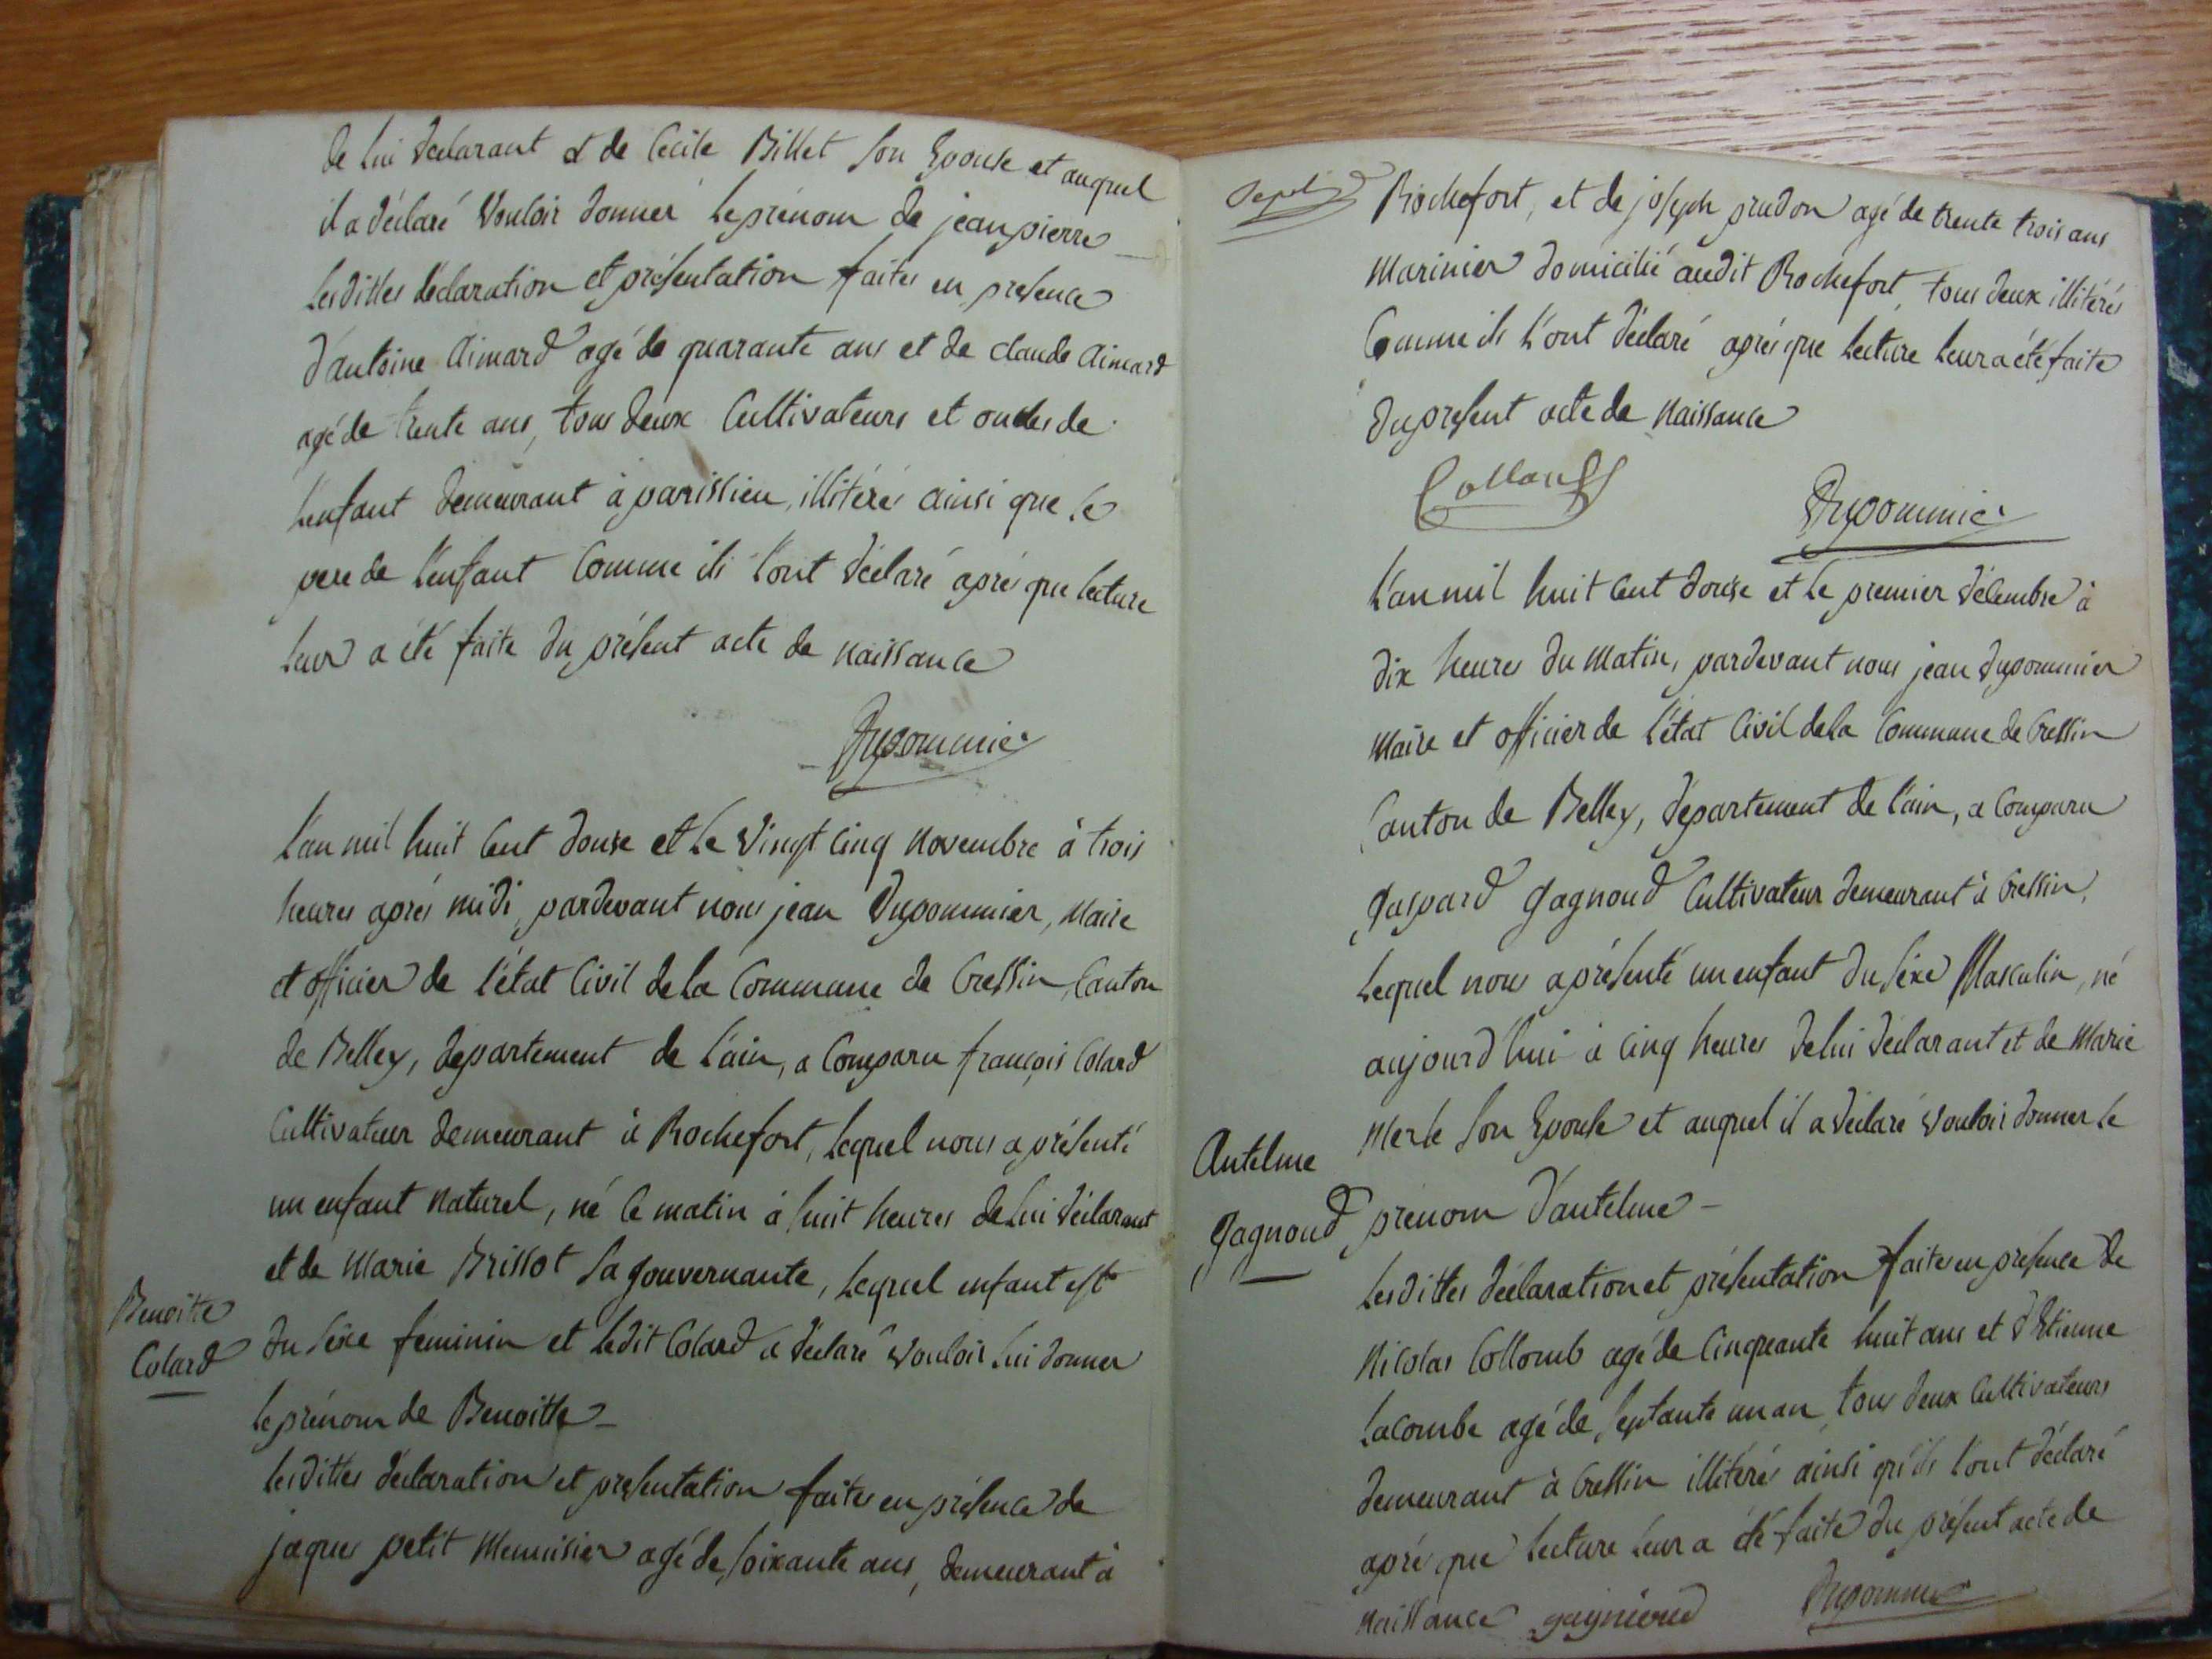 de lui déclarant et de Cécile Billet son Epouse et auquel
il a déclaré vouloir donner le prénom de jean pierre
lesdittes déclaration et présentation faites en présence
d'antoine aimard agé de quarante ans et de claude aimard
agé de trente ans, tous deux cultivateurs et oncles de
l'enfant demeurant à parissieu, illitérés ainsi que le
pere de l'enfant comme ils l'ont déclaré après que lecture
leur a été faite du présent acte de naissance
Dupommier
L'an mil huit cent douse et le vingt cinq novembre à trois
heures après midi, pardevant nous jean Dupommier, Maire
et officier de l'état Civil de la Commune de Cressin, Canton
de Belley, département de l'ain, a Comparu françois Colard
Cultivateur demeurant à Rochefort, lequel nous a présenté
un enfant naturel, né ce matin à huit heures de lui déclarant
et de Marie Brissot sa gouvernante, lequel enfant est
Benoitte
du sèxe féminin et ledit Colard a déclaré vouloir lui donner
Colard
le prénom de Benoitte
lesdittes déclaration et présentation faites en présence de
jaques petit Menuisier agé de soixante ans, demeurant à
Rochefort, et de joseph prudon agé de trente trois ans
Marinier domicilié audit Rochefort, tous deux illitérés
Comme ils l'ont déclaré après que lecture leur a été faite
du présent acte de naissance
Dupommier
L'an mil huit cent douse et le premier décembre à
dix heures du matin, pardevant nous jean dupommier
Maire et officier de l'état Civil de la Commune de Cressin
Canton de Belley, département de l'ain, a Comparu
gaspard gagnoud Cultivateur demeurant à Cressin,
lequel nous a présenté un enfant du sèxe Masculin, né
aujourd'hui à cinq heures de lui déclarant et de Marie
Merle son Epouse et auquel il a déclaré vouloir donner le
Antelme
gagnoud
prénom d'antelme
lesdittes déclaration et présentation faites en présence de
Nicolas Collomb agé de Cinqeante huit ans et d'Etienne
Lacombe agé de septante un an, tous deux Cultivateurs
demeurant à Cressin illitérés ainsi qu'ils l'ont déclaré
après que lecture leur a été faite du présent acte de
naissance gagnioud Dupommier